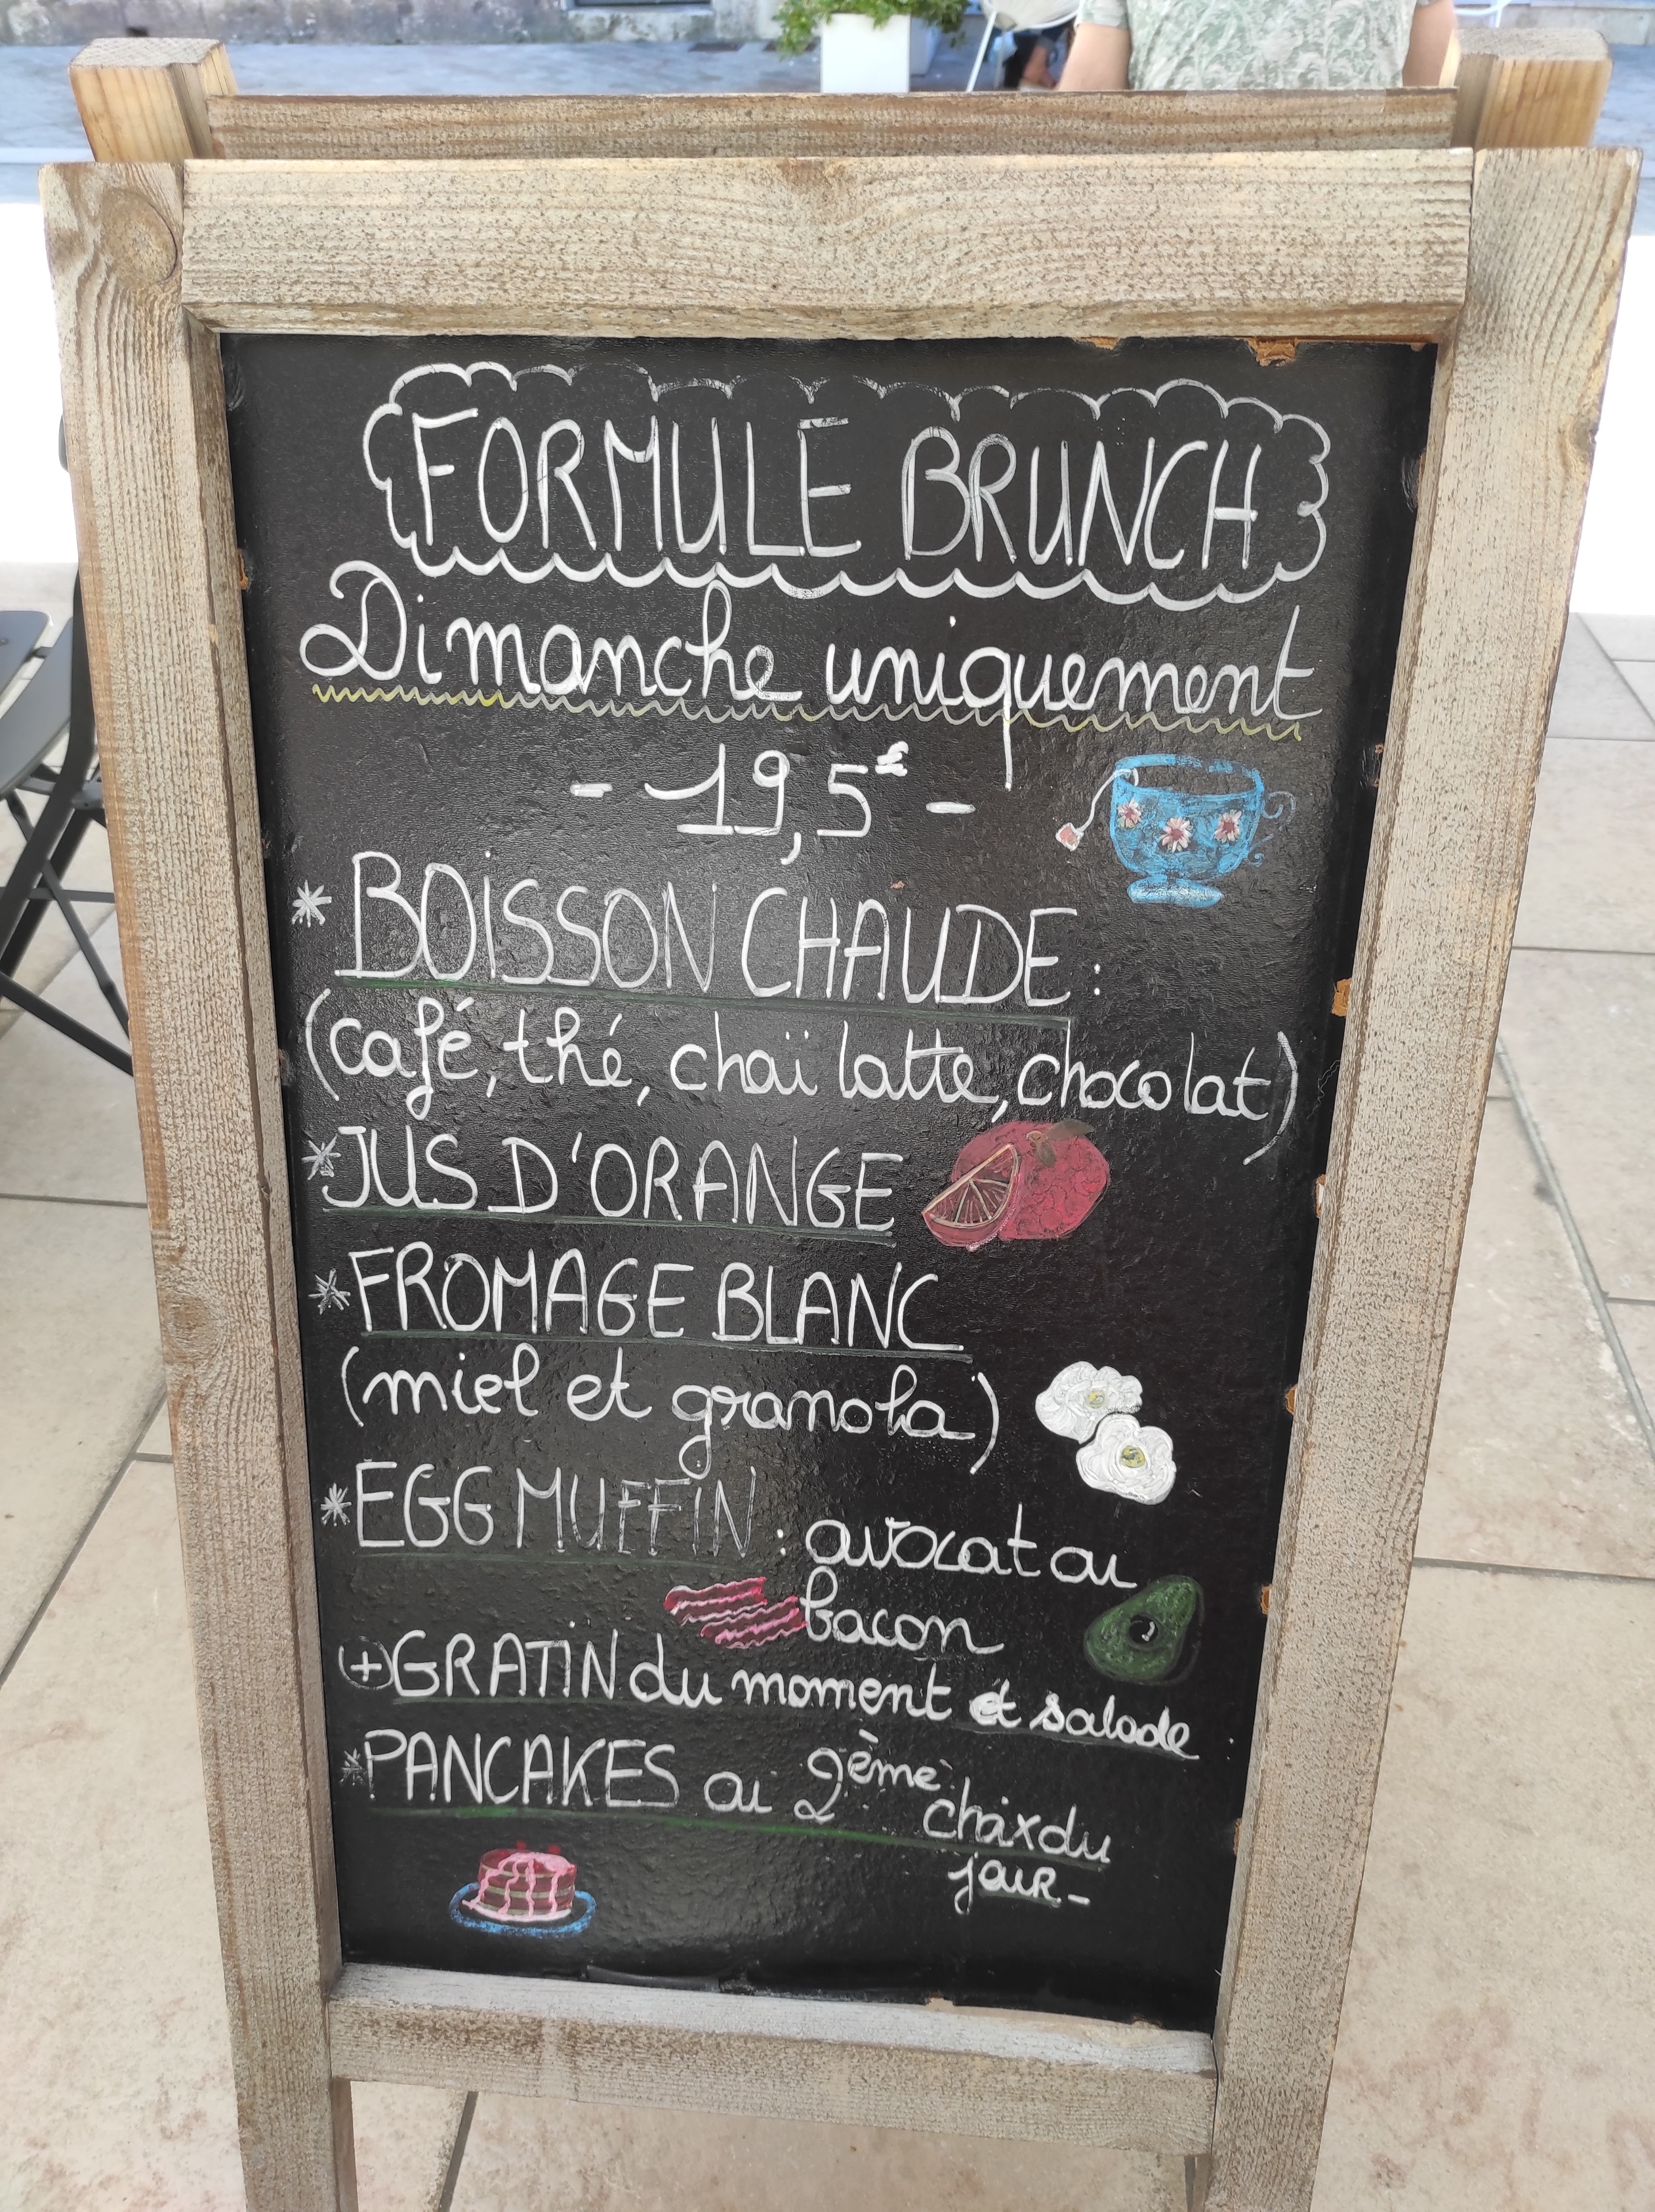 FORMULE BRUNCH
Dimanche uniquement
- 19,5€ -
* BOISSON CHAUDE :
(café, thé, chaï latte, chocolat)
* JUS D'ORANGE
* FROMAGE BLANC
(miel et granola)
* EGG MUFFIN : avocat ou
bacon
+ GRATIN du moment et salade
* PANCAKES ou 2ème choix du
jour-